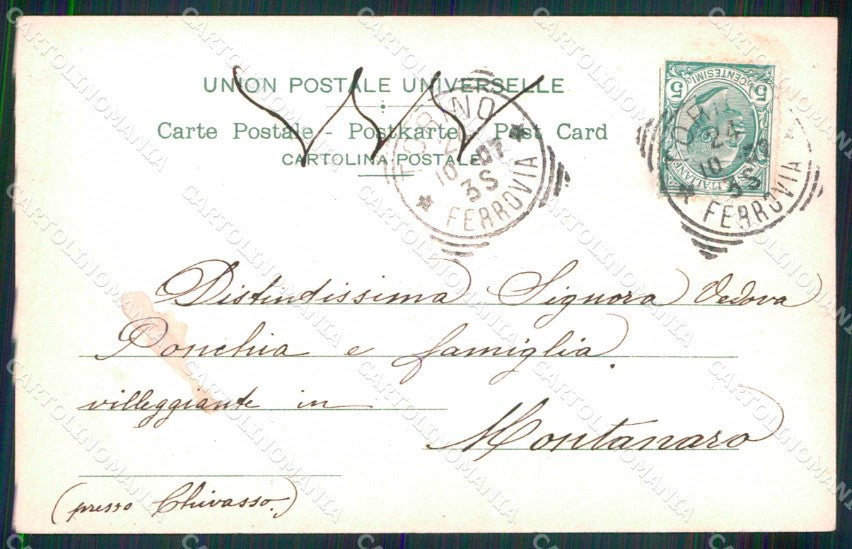 UNION POSTALE UNIVERSELLE
Carte Postale - Postkarte - Post Card
CARTOLINA POSTALE
TORINO
24
10 07
3S
* FERROVIA *
5 CENTESIMI 5
TORINO
24
10 07
3S
* FERROVIA
Distintissima Signora Vedova
Ponchia e famiglia.
villeggiante in
Montanaro
(presso Chivasso.)
CARTOLINOMANIA